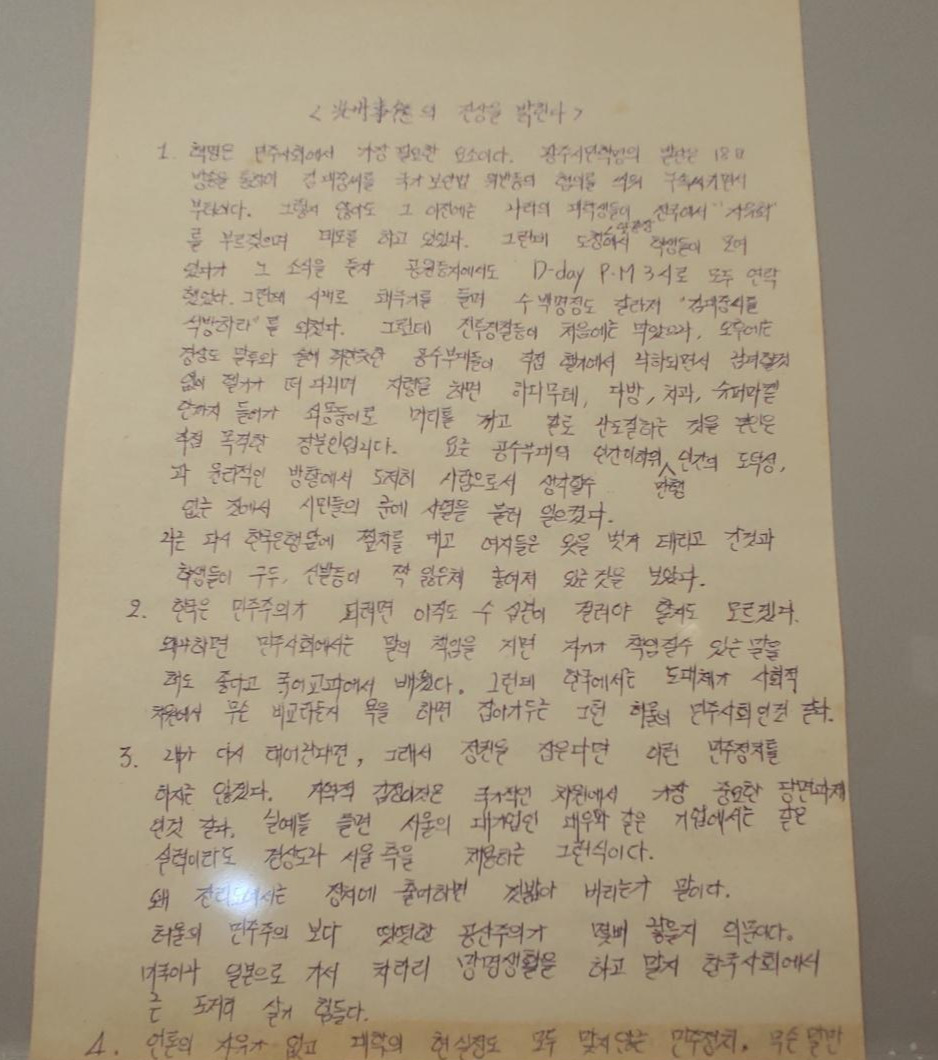 <光州事態의 진상을 밝힌다>
1. 혁명은 민주사회에서 가장 필요한 요소이다. 광주시민혁명의 발단은 18日
방송을 통하여 김대중씨를 국가보안법 위반등의 혐의를 씌워 구속시키면서
부터이다. 그렇지 않아도 그 이전에는 나라의 대학생들이 전국에서 "자유화"
를 부르짖으며 데모를 하고 있었다. 그런데 도청에서 학생들이 모여
있다가 그 소식을 듣자 공원등지에서도 D-day P.M 3시로 모두 연락
했었다. 그런데 시내로 돌며 수백명정도 갈라져 "김대중씨를
석방하라"를 외쳤다. 그런데 전투경찰들이 처음에는 막았으나, 오후에는
경상도 말투와 술에 취한듯한 공수부대들이 직접 헬기에서 낙하되면서
없이 때리며 저항을 하면 하다못해, 다방, 치과, 슈퍼마켙
안까지 들어가 쇠몽둥이로 머리를 까고 칼로 난도질하는 것을 본인은
직접 목격한 장본인입니다. 요는 공수부대의 인간이하의 만행 인간의 도덕성,
과 윤리적인 방향에서 도저히 사람으로서 생각할수
없는 것에서 시민들의 눈에 사열을 불러 일으켰다.
나는 다시 한국은행앞에 여자들은 옷을 벗겨 때리고 간것과
학생들이 구두, 신발등이 짝 잃은채 놓여져 있는 것을 보았다.
2. 한국은 민주주의가 되려면 아직도 수 십년이 걸려야 할지도 모르겠다.
왜냐하면 민주사회에서는 말의 책임을 지면 자기가 책임질수 있는 말을
해도 좋다고 국어교과에서 배웠다. 그런데 한국에서는 도대체가 사회적
차원에서 무슨 비교라든지 욕을 하면 잡아가두는 그런 허울의 민주사회인것 같다.
3. 내가 다시 태어난다면, 그래서 정권을 잡는다면 이런 민주정치를
하지는 않겠다. 지역적 감정이것은 국가적인 차원에서 가장 중요한 당면과제
인것 같다. 실예를 들면 서울의 대기업인 대우와 같은 기업에서는 같은
실력이라도 경상도나 서울 쪽을 채용하는 그런식이다.
왜 전라도에서는 정치에 출마하면 짓밟아 버리는가 말이다.
허울의 민주주의 보다 떳떳한 공산주의가 몇배 좋을지 의문이다.
미국이나 일본으로 가서 차라리 망명생활을 하고 말지 한국사회에서
는 도저히 살기 힘들다.
4. 언론의 자유가 없고 대학의 현실정도 모두 맞지않는 민주정치. 무슨 말만